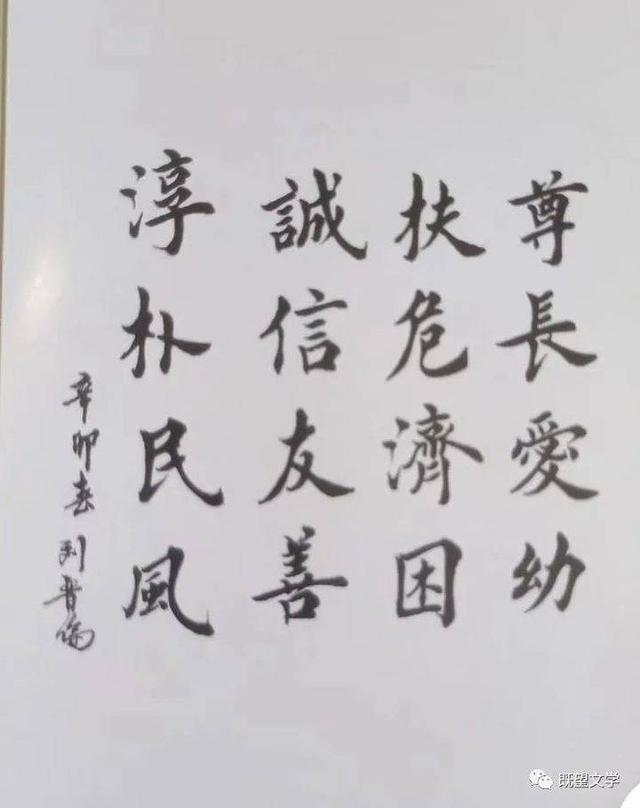 尊長愛幼
扶危濟困
誠信友善
淳朴民風
辛卯春刘晋儒
既望文学